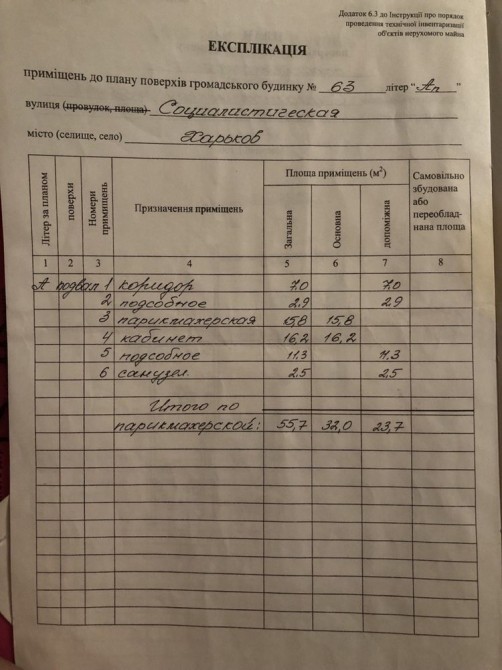 Додаток 6.3 до Інструкції про порядок
проведення технічної інвентаризації
об'єктів нерухомого майна
ЕКСПЛІКАЦІЯ
приміщень до плану поверхів громадського будинку № 63 літер "Ап"
вулиця (провулок, площа) Социалистическая
місто (селище, село) Харьков
Літер за планом поверхи Номери приміщень Призначення приміщень Площа приміщень (м²) Самовільно збудована або переоблад-нана площа
Загальна Основна допоміжна
1 2 3 4 5 6 7 8
А подвал 1 коридор 7.0 7.0
2 подсобное 2.9 2.9
3 парикмахерская 15,8 15,8
4 кабинет 16,2 16,2
5 подсобное 11.3 11.3
6 санузел 2.5 2.5
Итого по
парикмахерской: 55,7 32,0 23,7